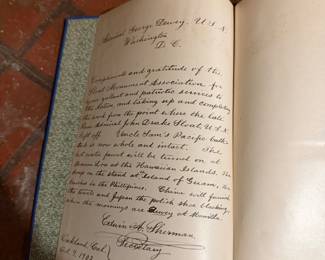 Admiral George Dewey, U.S.N.
Washington
D.C.
Compliments and gratitude of the
Sloat Monument Association for
your gallant and patriotic services to
the Nation, and taking up and completing
the work from the point where the late
Rear Admiral John Drake Sloat, U.S.N.
left off. Uncle Sam's Pacific bath
tub is now whole and intact. The
hot water point will be turned on at
at the Hawaiian Islands. The
soap in the stand at Island of Guam, the
towels in the Phillipines. China will furnish
the and Japan the polish shoe blacking
when the mornings are Dewey at Manilla
Edwin A. Sherman
Secretary
Oakland, Cal
Oct. 3, 190